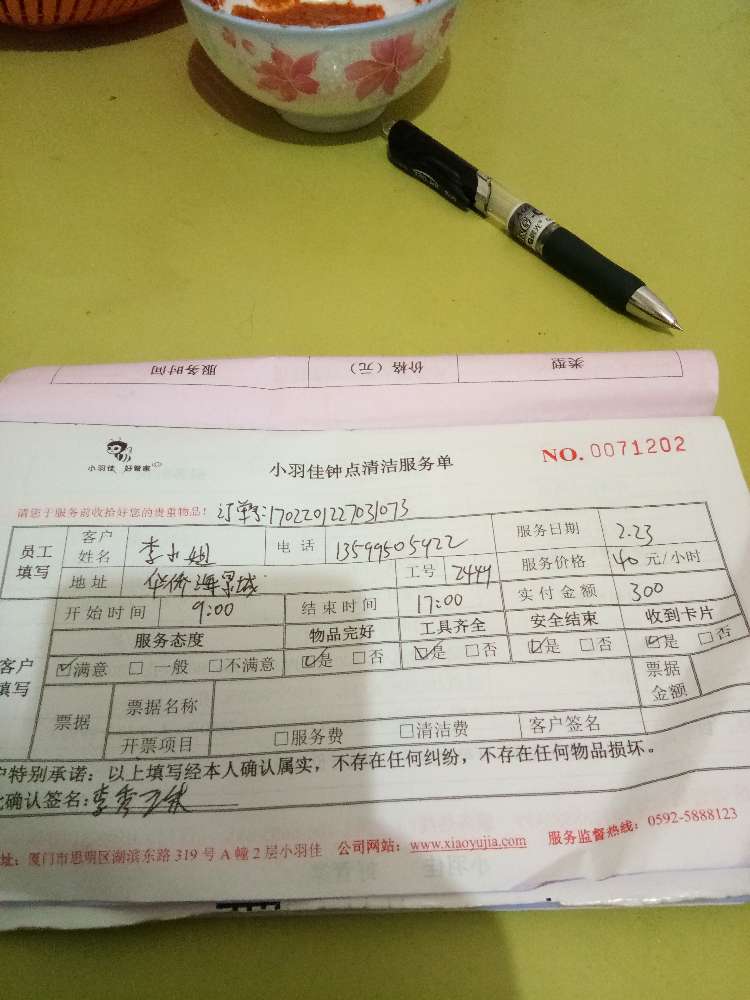 类型 价格（元） 服务时间
小羽佳 好管家
小羽佳钟点清洁服务单
NO. 0071202
请您于服务前收拾好您的贵重物品！ 订单号:170220122703​1073
员工填写 客户姓名 李小姐 电话 13599505922 服务日期 2.23
地址 华侨海景城 工号 2449 服务价格 40 元/小时
开始时间 9:00 结束时间 17:00 实付金额 300
服务态度 物品完好 工具齐全 安全结束 收到卡片
客户填写 ☑满意 □一般 □不满意 ☑是 □否 ☑是 □否 ☑是 □否 ☑是 □否
票据 票据名称 票据金额
开票项目 □服务费 □清洁费 客户签名
户特别承诺：以上填写经本人确认属实，不存在任何纠纷，不存在任何物品损坏。
确认签名:李秀
址：厦门市思明区湖滨东路 319 号 A 幢 2 层小羽佳 公司网站：www.xiaoyujia.com 服务监督热线：0592-5888123